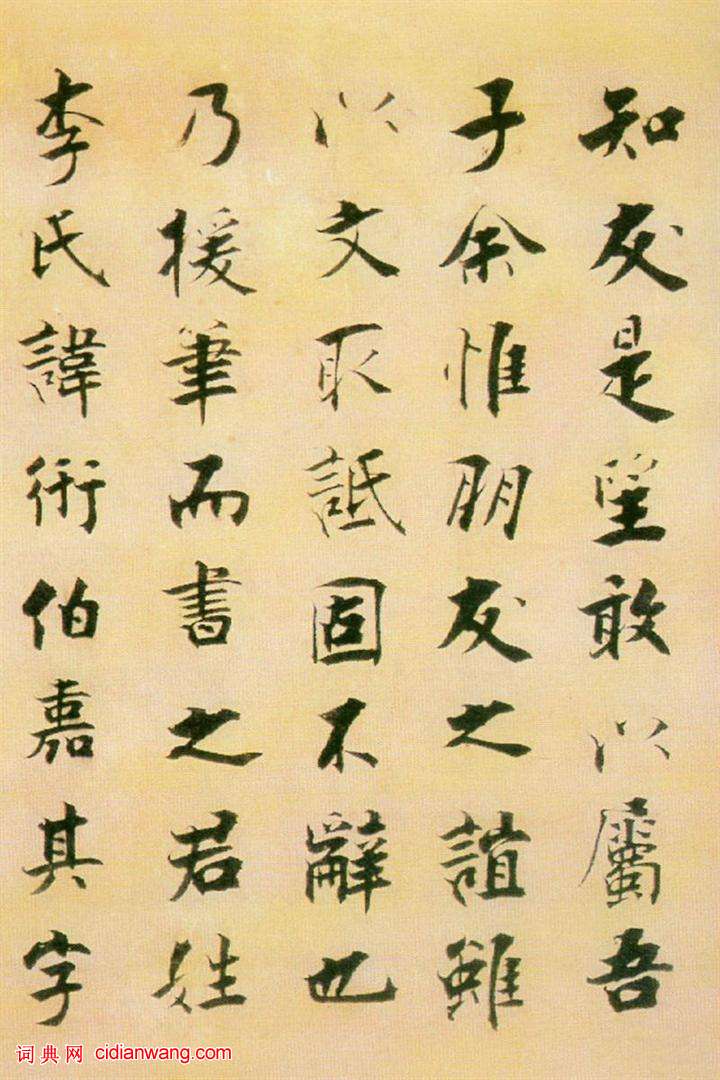 知友是望敢以屬吾
子余惟朋友之誼雖
以文取詆固不辭也
乃援筆而書之若姓
李氏諱術伯嘉其字
词典网 cidianwang.com